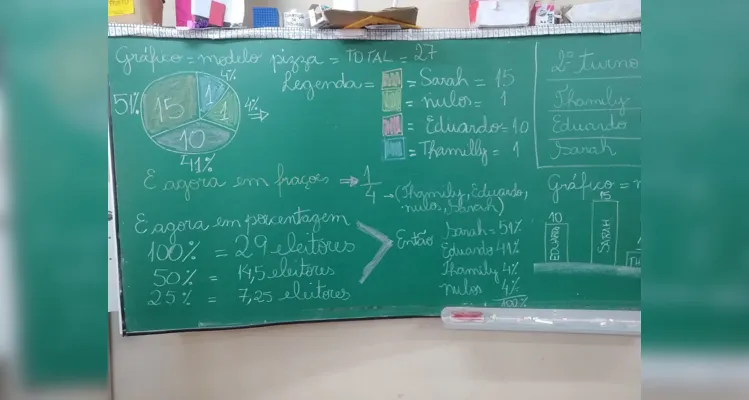 Gráfico = modelo pizza = TOTAL = 27
51%
15
1
1
10
4%
4%
41%
Legenda = = Sarah = 15
= nulos = 1
= Eduardo = 10
= Thamilly = 1
E agora em frações → 1/4 → (Thamily, Eduardo, nulo, Sarah)
E agora em porcentagem
100% = 29 eleitores
50% = 14,5 eleitores
25% = 7,25 eleitores
Então
Sarah = 51%
Eduardo 41%
Thamily 4%
Nulos 4%
100%
2º turno
Thamily
Eduardo
Sarah
Gráfico =
10
EDUARDO
15
SARAH